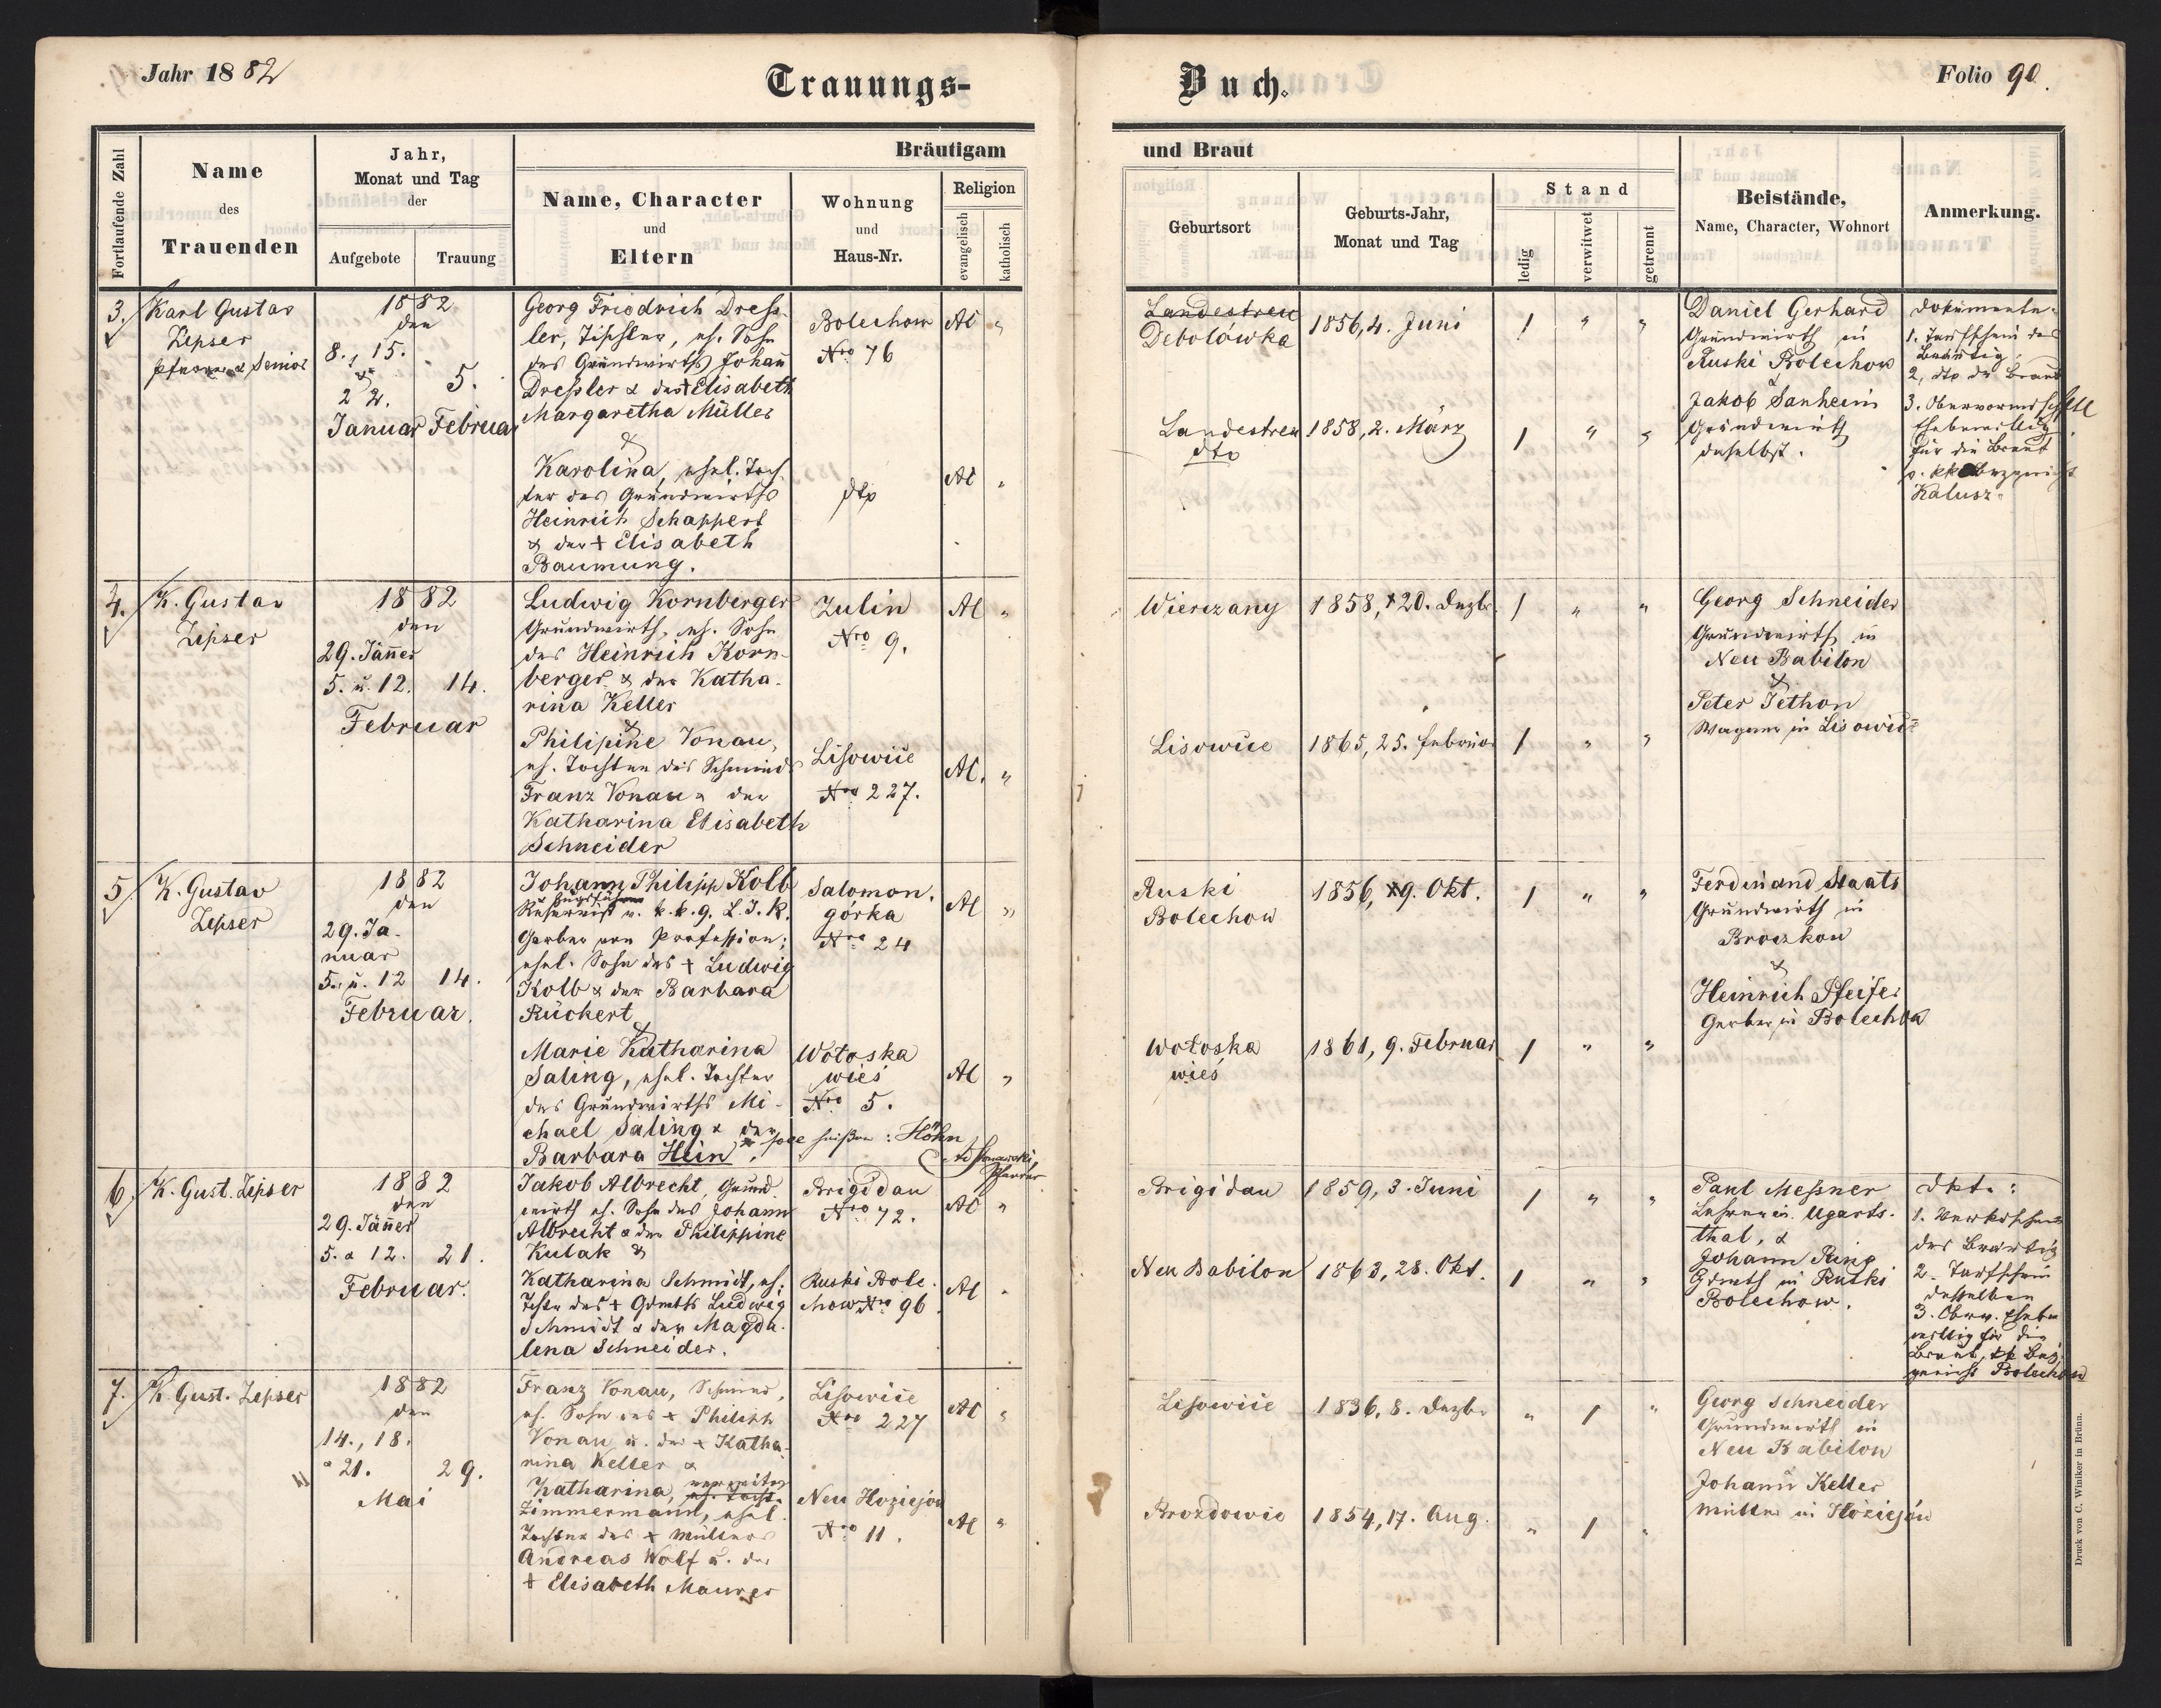 Jahr 1882
Trauungs-
Buch.
Folio 90.
Fortlaufende Zahl
Name
des
Trauenden
Jahr,
Monat und Tag
der
Aufgebote
Trauung
Bräutigam
Name, Character
und
Eltern
Wohnung
und
Haus-Nr.
Religion
evangelisch
katholisch
und Braut
Geburtsort
Geburts-Jahr,
Monat und Tag
Stand
ledig
verwitwet
getrennt
Beistände,
Name, Character, Wohnort
Anmerkung.
3.
Karl Gustav
Zipser
Pfarrer & Senior
1882
den
8., 15.
&
22.
5.
Januar
Februar
Georg Friedrich Dress-
ler, Tischler, eh. Sohn
des Grundwirths Johann
Dressler & der † Elisabeth
Margaretha Müller
&
Karolina, ehel. Toch-
ter des Grundwirths
Heinrich Schappert
& der † Elisabeth
Baumung.
Bolechow
Nro 76
dto
AC "
AC "
Landestreu
Debolówka
1856, 4. Juni
1 " "
Landestreu
dto
1858, 2. März
1 " "
Daniel Gerhard
Grundwirth in
Ruski Bolechow
&
Jakob Sanheim
Grundwirth
daselbst.
Dokumente:
1. Taufschein des
Bräutig.
2, dto der Braut
3. Obervormdschftl
Ehebewillig.
für die Braut
v. kk Bezgericht
Kalusz.
4.
K. Gustav
Zipser
1882
den
29. Jänner
5. u. 12.
14.
Februar
Ludwig Kornberger
Grundwirth, eh. Sohn
des Heinrich Korn-
berger & der Katha-
rina Keller
&
Philipine Vonau,
eh. Tochter des Schmieds
Franz Vonau & der
Katharina Elisabeth
Schneider
Zulin
Nro 9.
Lisowice
Nro 227.
AC "
AC. "
Wierczany
1858, 20. Dezbr.
1 " "
Lisowice
1865, 25. Februar
1 " "
Georg Schneider
Grundwirth in
Neu Babilon
&
Peter Pethon
Wagner in Lisowice
5
K. Gustav
Zipser
1882
den
29. Ja-
nuar
5. u. 12
14.
Februar.
Johann Philipp Kolb
Zugsführer
Reservist v. k. k. g. L. I. R.
Gerber von Profession;
ehel. Sohn des † Ludwig
Kolb & der Barbara
Rückert
&
Marie Katharina
Saling, ehel. Tochter
des Grundwirths Mi-
chael Saling & der
Barbara Hein,
soll heißen: Höhn
Pfarrer
Salomon-
górka
Nro 24
Wołoska
wieś
Nro 5.
AC "
AC "
Ruski
Bolechow
1856, 9. Okt.
1 " "
Wołoska
wieś
1861, 9. Februar
1 " "
Ferdinand Staats
Grundwirth in
Broczkow
&
Heinrich Pfeifer
Gerber in Bolechow
6
K. Gust. Zipser
1882
den
29. Jänner
5. & 12.
21.
Februar.
Jakob Albrecht, Grund-
wirth eh. Sohn des Johann
Albrecht & der Philippine
Kulak &
Katharina Schmidt, eh.
Tchtr des † Grdwths Ludwig
Schmidt & der Magda-
lena Schneider.
Brigidau
Nro 72.
Ruski Bole-
chow Nro 96
AC "
AC "
Brigidau
1859, 3. Juni
1 " "
Neu Babilon
1863, 28. Okt.
1 " "
Paul Messner
Lehrer in Ugarts-
thal, &
Johann Ring
Grdwth in Ruski
Bolechow.
Dkte:
1. Verkdschein
des Bräutig
2. Taufschein
desselben
3. Oberv. Ehebe-
willig für die
Braut, Bez-
gericht Bolechow
7.
K. Gust. Zipser
1882
den
14., 18.
& 21.
29.
Mai
Franz Vonau, Schmied,
eh. Sohn des † Philipp
Vonau u. der † Katha-
rina Keller &
Katharina, verwitw.
Zimmermann, ehel.
Tochter des † Müllers
Andreas Wolf u. der
† Elisabeth Maurer
Lisowice
Nro 227
Neu Hoziejów
Nro 11.
AC "
AC "
Lisowice
1836, 8. Dezbr
" 1 "
Brozdowie
1854, 17. Aug.
" 1 "
Georg Schneider
Grundwirth in
Neu Babilon
Johann Keller
Müller in Hoziejów
Druck von C. Winiker in Brünn.